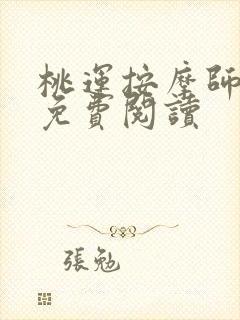 桃運按摩師
免費閱讀
張勉